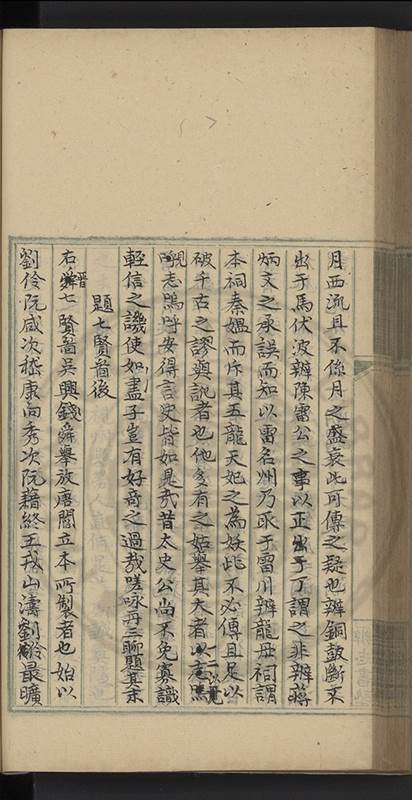 月西流且不係月之盛衰此可傳之疑也辨銅鼓斷不
出于馬伏波辨陳雷公之事以正出于丁謂之非辨蔣
炳文之承誤而知以雷名州乃取于雷川辨龍母祠謂
本祠秦媼而斥其五龍天妃之為妖此不必傳且足以
破千古之謬與訛者也他多有之姑舉其大者以
覘志嗚呼安得言史皆如是哉昔太史公尚不免寡識
輕信之譏使如盡子豈有好奇之過哉嗟咏再三聊題其末
題七賢啚後
右晋七賢啚吳興錢舜舉放唐閻立本所製者也始以
劉伶阮咸次嵇康向秀次阮籍終王戎山濤劉伶最曠